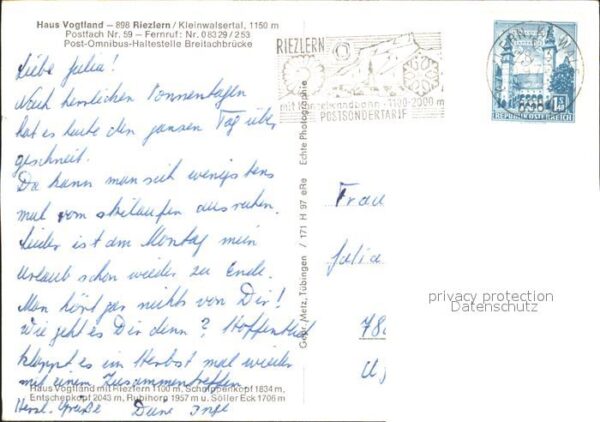 Haus Vogtland – 898 Riezlern / Kleinwalsertal, 1150 m
Postfach Nr. 59 – Fernruf: Nr. 08329/253
Post-Omnibus-Haltestelle Breitachbrücke
Liebe Julia!
Nach herrlichen Sonnentagen
hat es heute den ganzen Tag über
geschneit.
Da kann man seit wenigstens
mal vom skilaufen ausruhen.
Leider ist am Montag mein
Urlaub schon wieder zu Ende.
Man hört gar nichts von Dir!
Wie geht es Dir denn? Hoffentlich
klappt es im Herbst mal wieder
mit einem Zusammentreffen.
Herzl. Grüße Deine Inge
Haus Vogtland mit Riezlern 1100 m, Schnippenkopf 1834 m,
Entschenkopf 2043 m, Rubihorn 1957 m u. Söller Eck 1706 m
Gebr. Metz, Tübingen / 171 H 97 eRe Echte Photographie
RIEZLERN
1100-2000 m
POSTSONDERTARIF
REPUBLIK ÖSTERREICH
Frau
Julia
78
privacy protection
Datenschutz